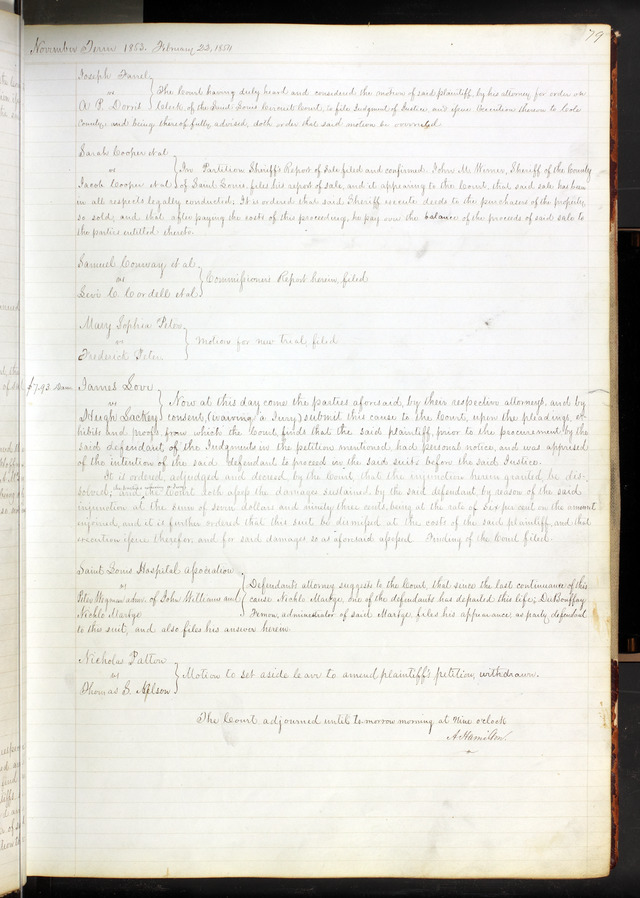 79
November Term 1853. February 23, 1854
Joseph Tanet
vs
A. P. Dorris
The Court having duly heard and considered the motion of said plaintiff, by his attorney for order on
Clerk of the Saint Louis Circuit Court, to file Judgment of Justice and issue Execution thereon to Cole
County; and being thereof fully advised, doth order that said motion be overruled.
Sarah Cooper et al
vs
Jacob Cooper et al
In Partition Sheriff's Report of Sale filed and confirmed. John M. Wimer, Sheriff of the County
of Saint Louis, files his report of sale, and it appearing to the Court, that said sale has been
in all respects legally conducted; It is ordered that said Sheriff execute deeds to the purchasers of the property,
so sold; and that after paying the costs of this proceeding, he pay over the balance of the proceeds of said sale to
the parties entitled thereto.
Samuel Conway et al
vs
Levi C. Cordell et al
Commissioners Report herein, filed
Mary Sophia Peter
vs
Frederick Peter
Motion for new trial, filed
$7.93 Dam
James Love
vs
Hugh Lackey
Now at this day come the parties aforesaid, by their respective attorneys, and by
consent, (waiving a Jury) submit this cause to the Court, upon the pleadings, ex-
hibits and proofs, from which the Court, finds that the said plaintiff, prior to the procurement by the
said defendant of the Judgments in the petition mentioned, had personal notice, and was apprised
of the intention of the said defendant to proceed in the said suits before the said Justice.
It is ordered, adjudged and decreed, by the Court, that the injunction herein granted, be dis-
solved; and the Court doth assess the damages sustained by the said defendant by reason of the said
injunction at the sum of seven dollars and ninety three cents, being at the rate of six per cent on the amount
enjoined, and it is further ordered that this suit be dismissed at the costs of the said plaintiff, and that
execution issue therefor, and for said damages so as aforesaid assessed. Finding of the Court filed.
Saint Louis Hospital Association
vs
Peter Wegman admr. of John Williams and
Nichlo Martge
Defendant's attorney suggests to the Court, that since the last continuance of this
cause Nichlo Martge, one of the defendants has departed this life; DuBouffay
Fremon, administrator of said Martge files his appearance as party defendant
to this suit, and also files his answer herein.
Nicholas Patton
vs
Thomas S. Nelson
Motion to set aside leave to amend plaintiff's petition, withdrawn.
The Court adjourned until to-morrow morning at Nine o'clock
A. Hamilton.